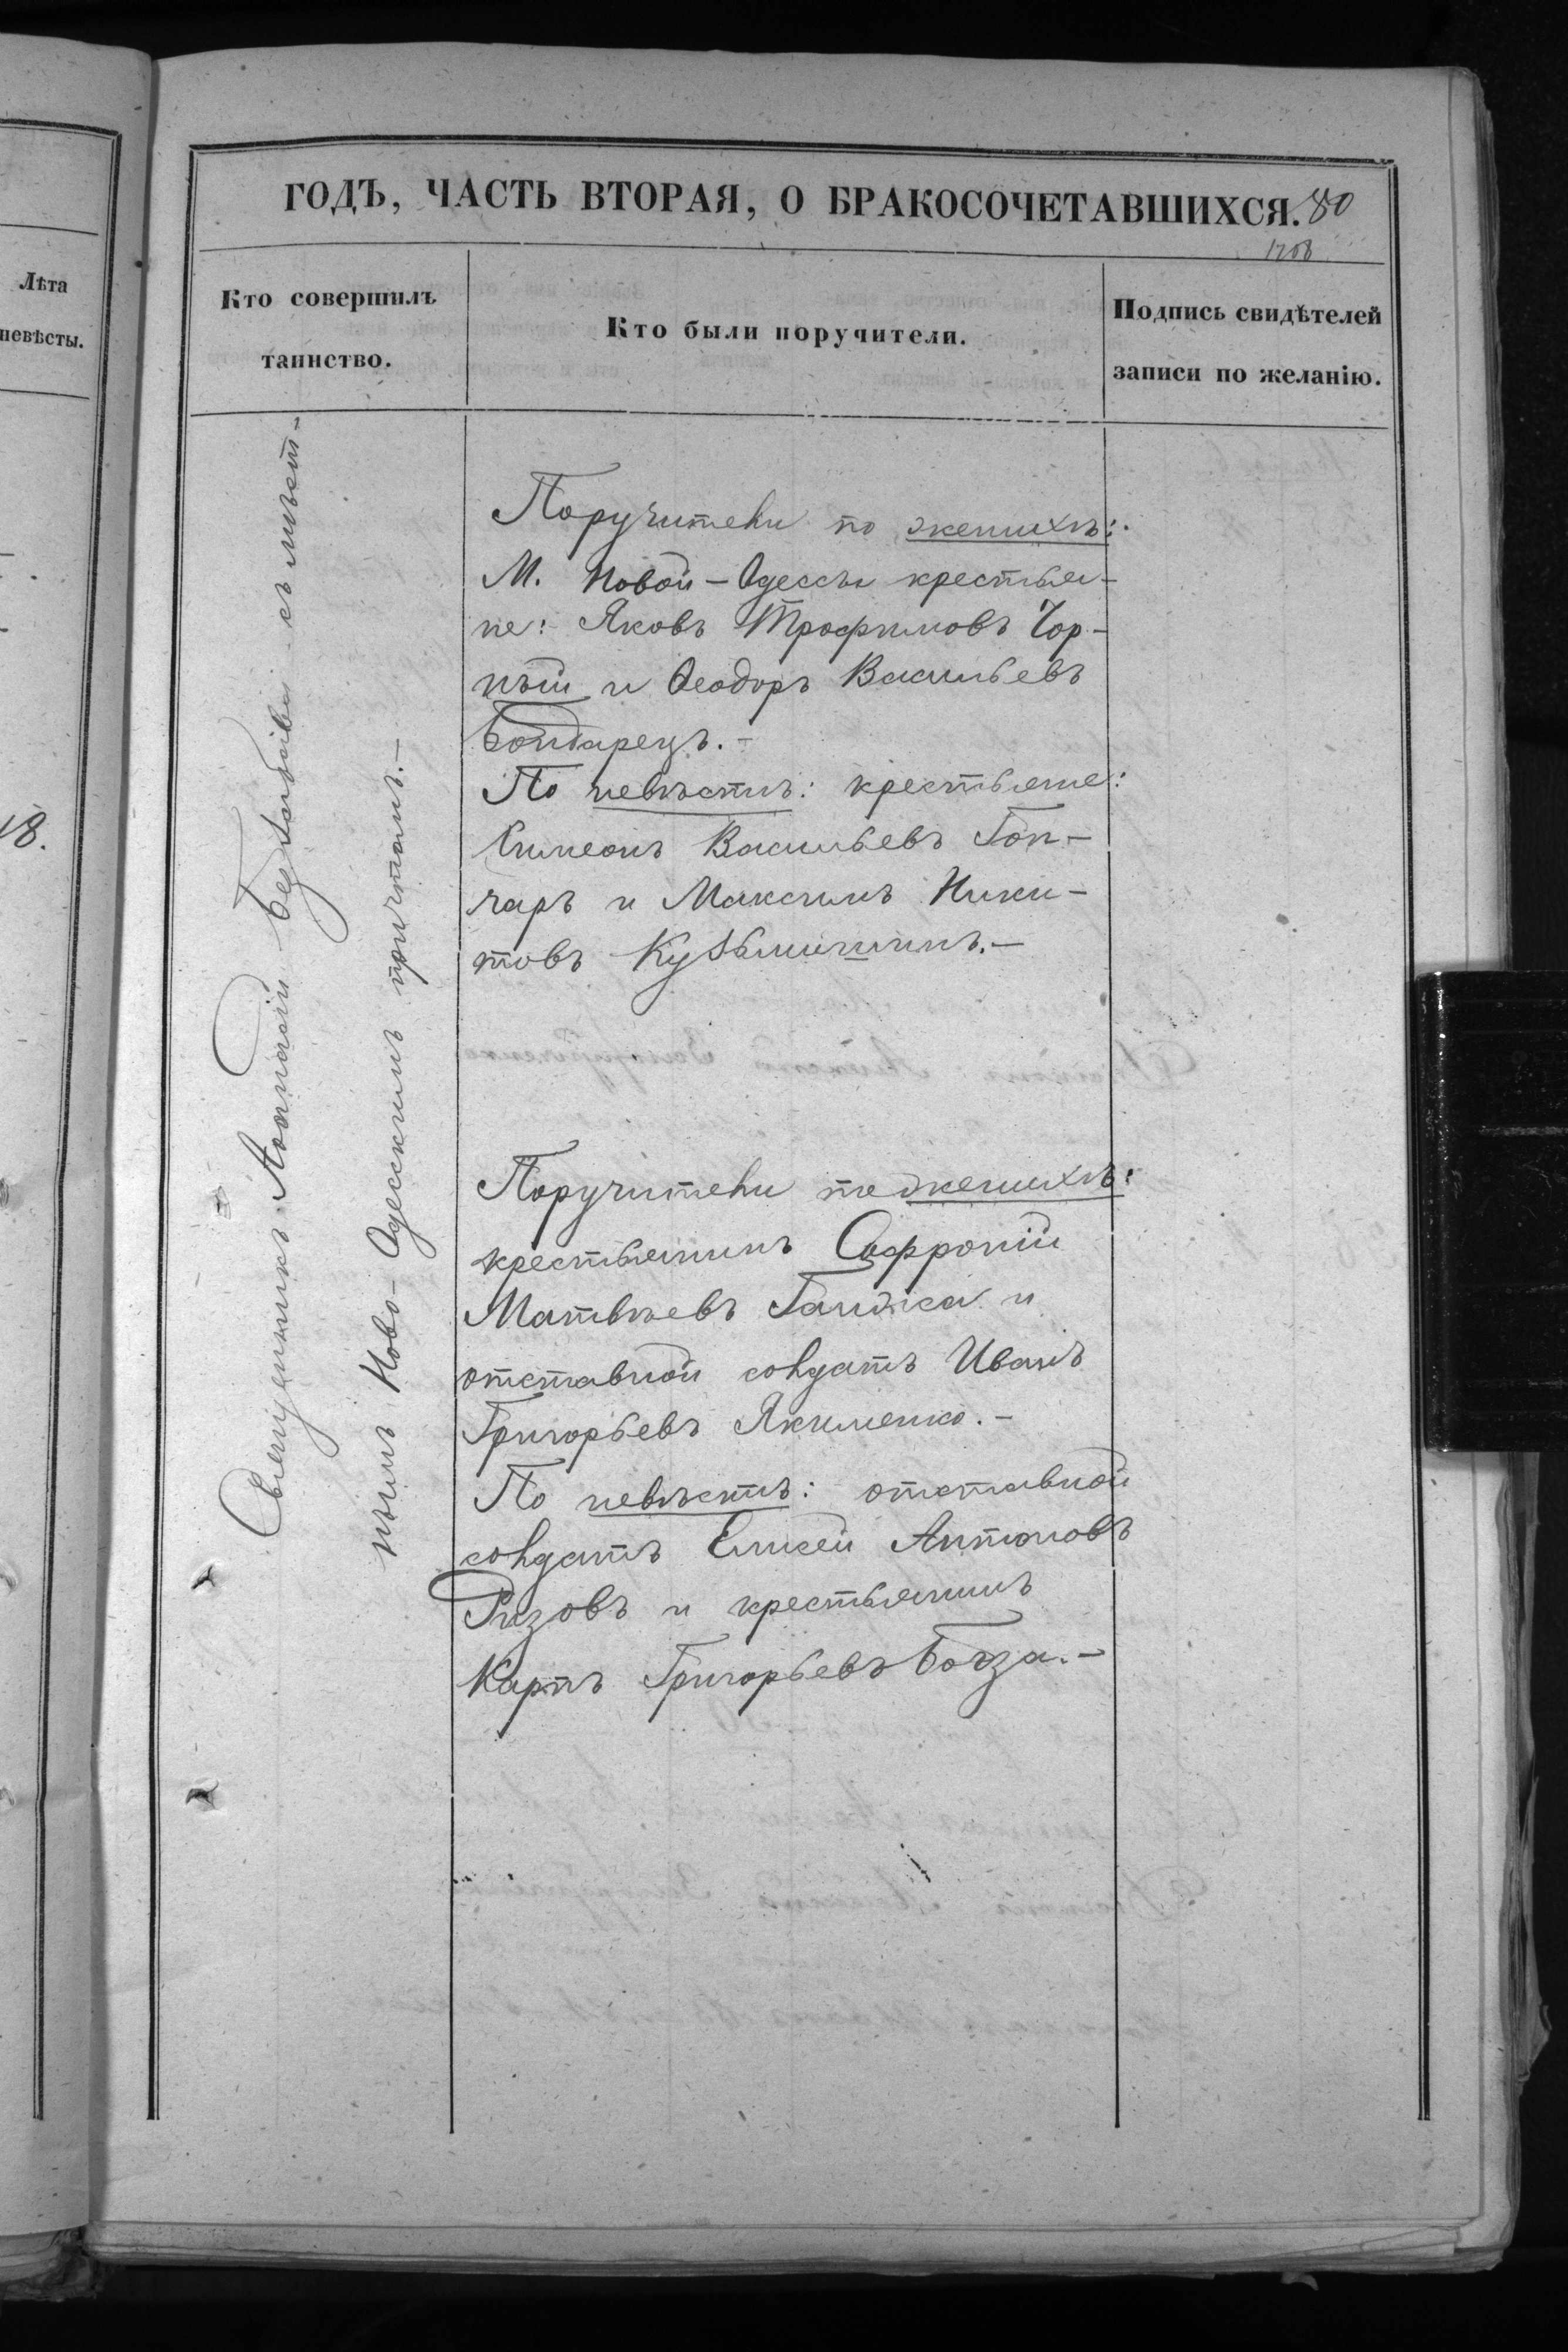 ГОДЪ, ЧАСТЬ ВТОРАЯ, О БРАКОСОЧЕТАВШИХСЯ. 80
Лѣта
невѣсты.
18.
Кто совершилъ
таинство.
Кто были поручители.
Подпись свидѣтелей
записи по желанію.
Священникъ Аѳанасій съ мѣст-
нымъ Ново-Одесскимъ причтомъ.-
Поручители по женихѣ:
М. Новой-Одессы крестья-
не: Яковъ Трофимовъ Чор-
ный и Ѳеодоръ Васильевъ
Бондарецъ.-
По невѣстѣ: крестьяне:
Симеонъ Васильевъ Гон-
чаръ и Максимъ Ники-
товъ Кузьминшинъ.-
Поручители по женихѣ:
крестьянинъ Софроній
Матвѣевъ Ганжа и
отставной солдатъ Иванъ
Григорьевъ Якименко.-
По невѣстѣ: отставной
солдатъ Елисей Антоновъ
Ризовъ и крестьянинъ
Карпъ Григорьевъ